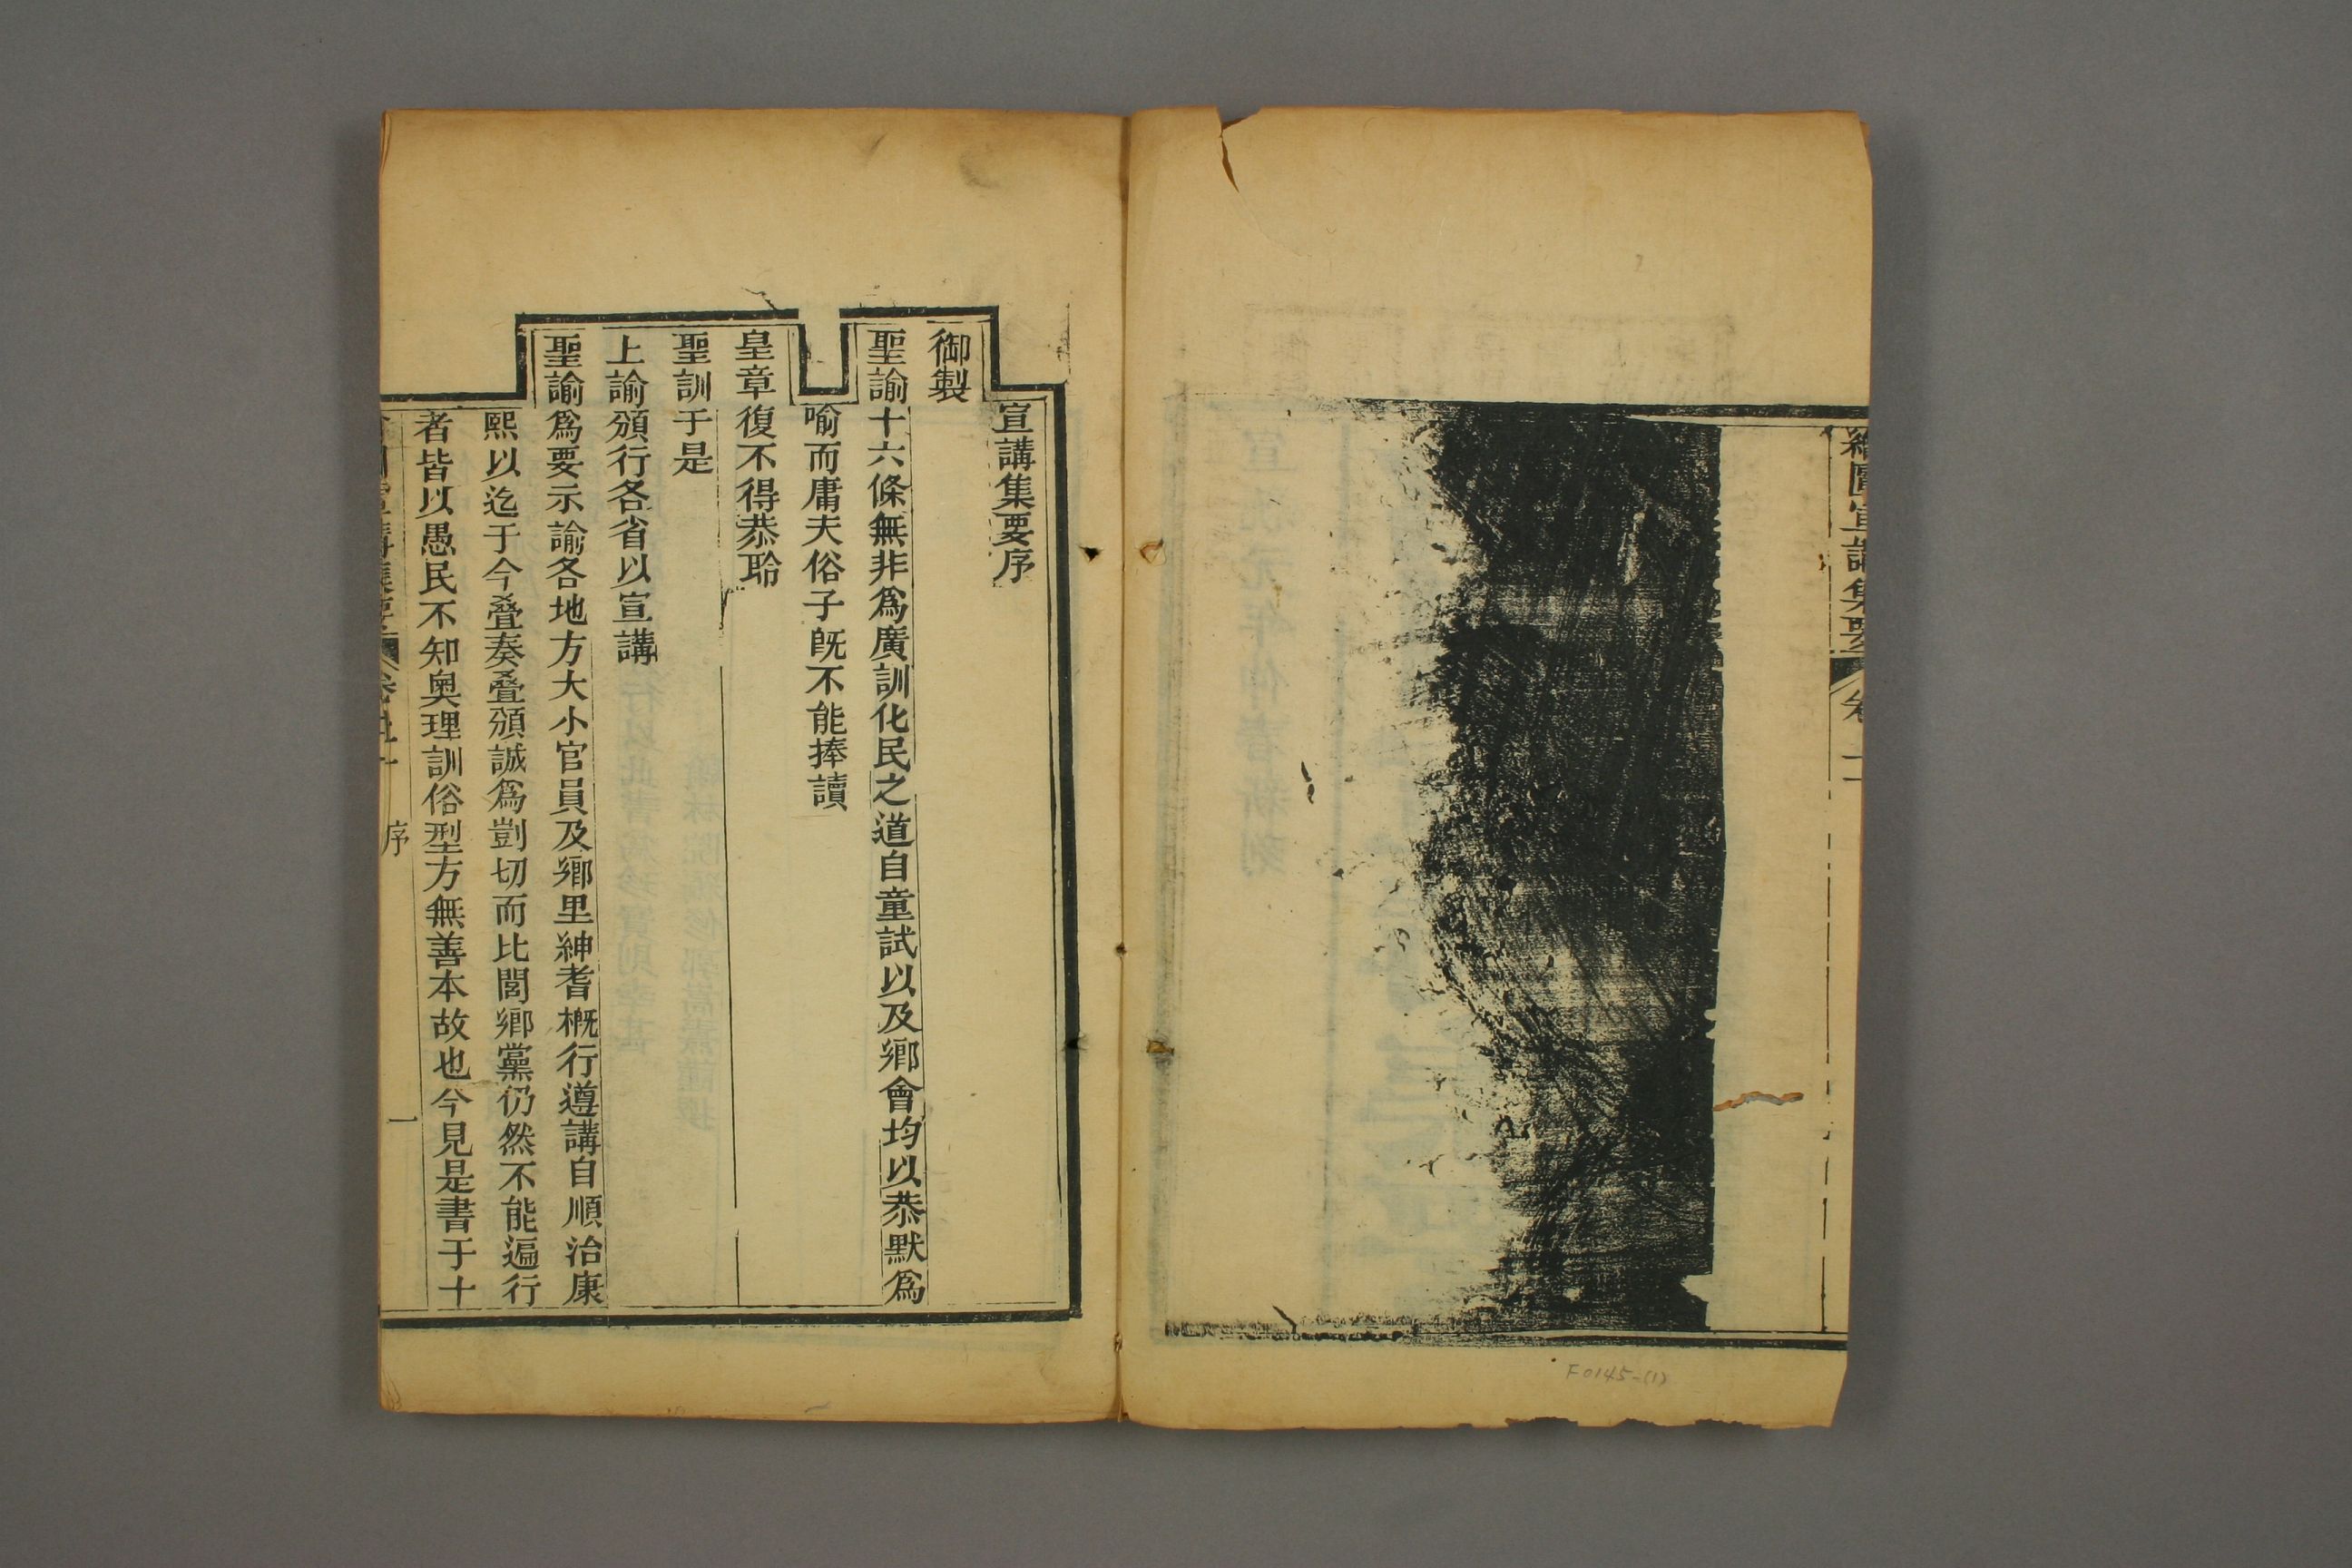 繪圖宣講集要 卷一
F0145-(1)
宣講集要序
御製
聖諭十六條無非爲廣訓化民之道自童試以及鄉會均以恭默爲
喻而庸夫俗子旣不能捧讀
皇章復不得恭聆
聖訓于是
上諭頒行各省以宣講
聖諭爲要示諭各地方大小官員及鄉里紳耆槪行遵講自順治康
熙以迄于今叠奏叠頒誠爲剴切而比閭鄉黨仍然不能遍行
者皆以愚民不知奧理訓俗型方無善本故也今見是書于十
序 一